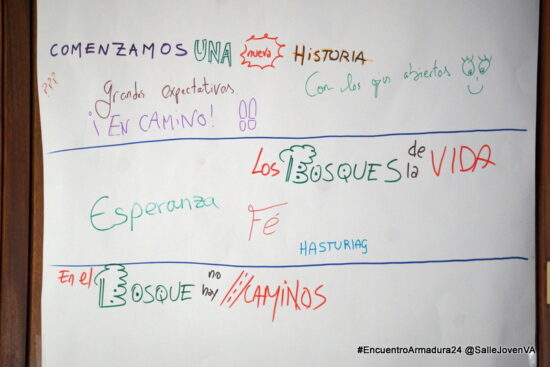 COMENZAMOS UNA nueva HISTORIA
???
Grandes expectativas
Con los ojos abiertos
¡EN CAMINO!
LOS BOSQUES de la VIDA
Esperanza
Fé
HASTURIAG
En el BOSQUE no hay CAMINOS
#EncuentroArmadura24 @SalleJovenVA